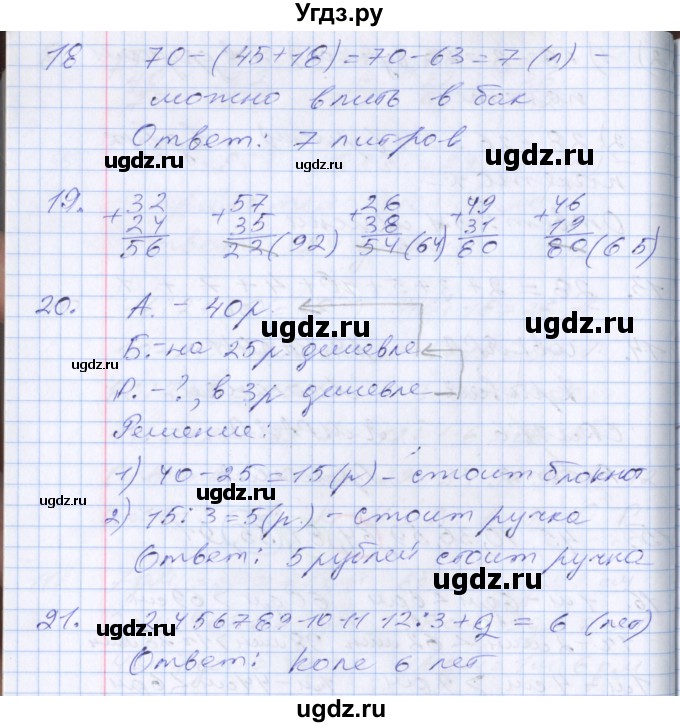 Угдз.ру
18 70-(45+18)=70-63=7(л) -
можно влить в бак
Ответ: 7 литров
ugdz.ru ugdz.ru
19. +32 +57 +26 +49 +46
24 35 38 31 19
56 22(92) 54(64) 80 80(65)
ugdz.ru
20. А. - 40р.
ugdz.ru
Б.-на 25р. дешевле
ugdz.ru
Р. - ?, в 3р дешевле
Решение:
1) 40-25=15(р) - стоит блокнот
ugdz.ru ugdz.ru
2) 15:3=5(р.) - стоит ручка
Ответ: 5 рублей стоит ручка
ugdz.ru
21. 3 4 5 6 7 8 9 10 11 12:3+2 = 6 (лет)
ugdz.ru ugdz.ru
Ответ: Коле 6 лет
Угдз.ру